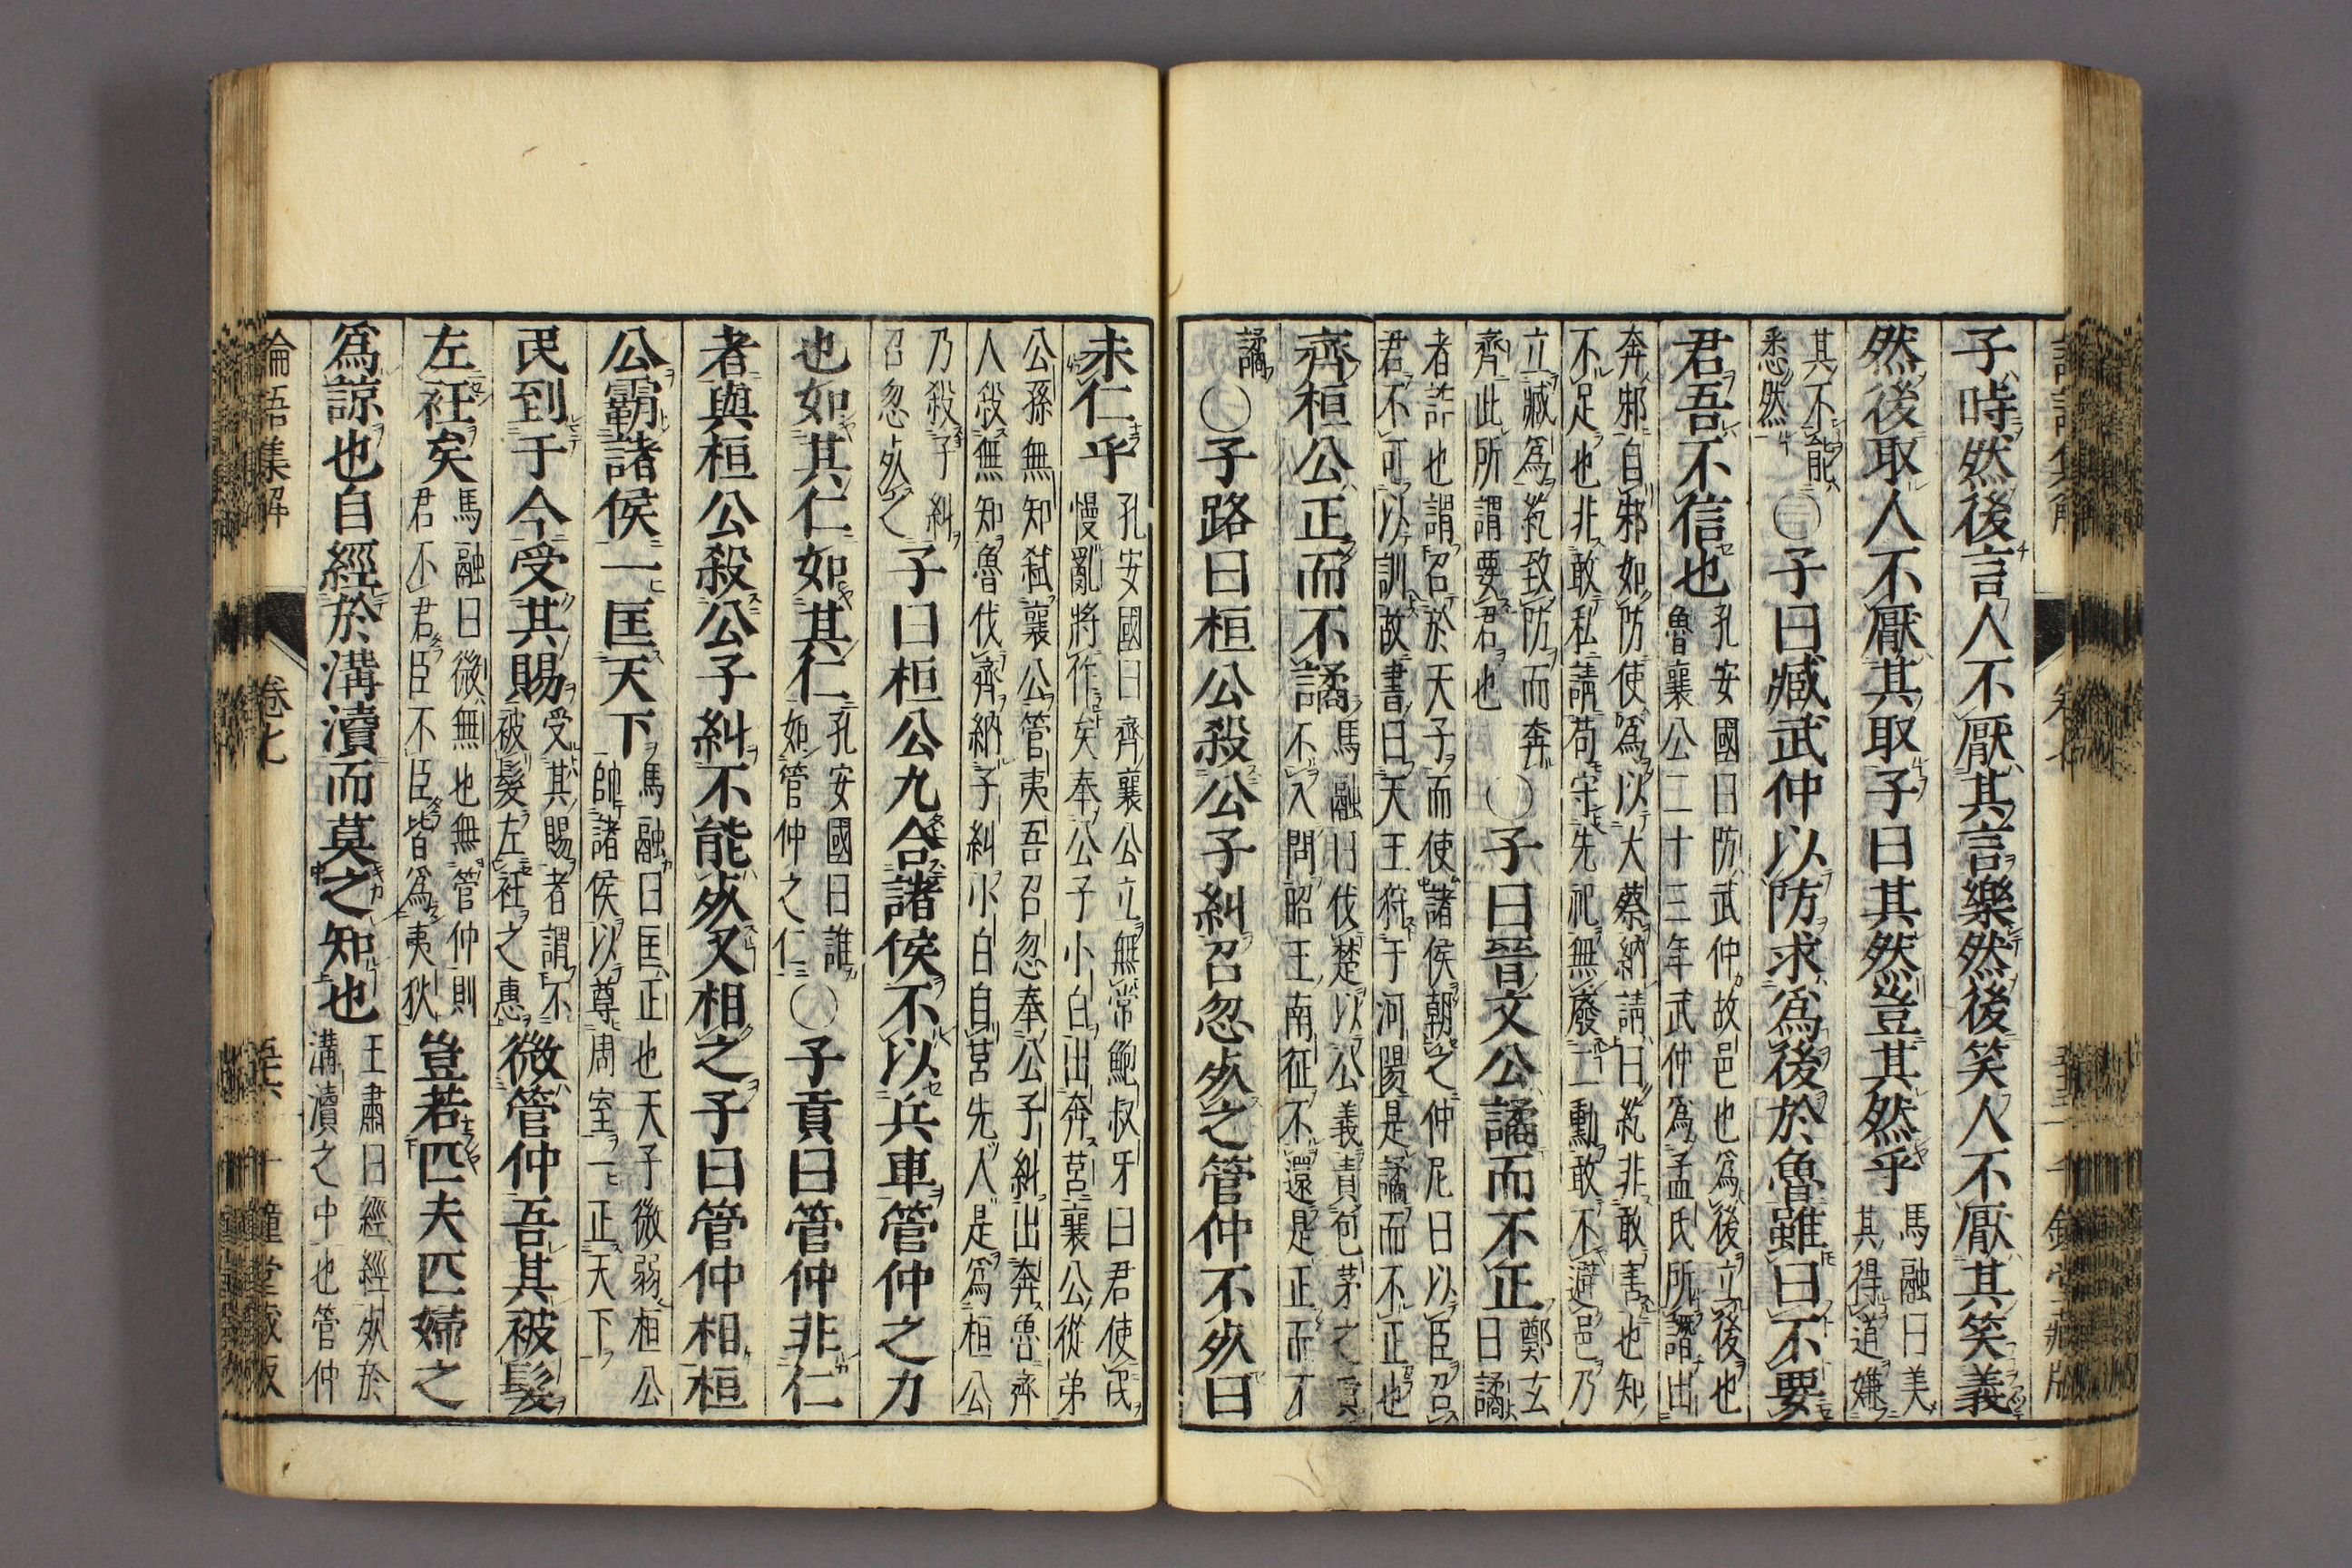 子時然後言人不厭其言樂然後笑人不厭其笑義
然後取人不厭其取子曰其然豈其然乎
馬融曰美
其得道嫌
其不能
悉然
○子曰臧武仲以防求爲後於魯雖曰不要
君吾不信也
孔安國曰防武仲故邑也爲後立後也
魯襄公二十三年武仲爲孟氏所譖出
奔邾自邾如防使爲以大蔡納請曰紇非敢害也知
不足也非敢私請苟守先祀無廢二勳敢不避邑乃
立臧爲紇致防而奔
齊此所謂要君也
○子曰晉文公譎而不正
鄭玄
曰譎
者詐也謂召於天子而使諸侯朝之仲尼曰以臣召
君不可以訓故書曰天王狩于河陽是譎而不正也
齊桓公正而不譎
馬融曰伐楚以公義責包茅之貢
不入問昭王南征不還是正而不
譎
○子路曰桓公殺公子糾召忽死之管仲不死曰
未仁乎
孔安國曰齊襄公立無常鮑叔牙曰君使民
慢亂將作矣奉公子小白出奔莒襄公從弟
公孫無知弑襄公管夷吾召忽奉公子糾出奔魯齊
人殺無知魯伐齊納子糾小白自莒先入是爲桓公
乃殺子糾
召忽死之
子曰桓公九合諸侯不以兵車管仲之力
也如其仁如其仁
孔安國曰誰
如管仲之仁
○子貢曰管仲非仁
者與桓公殺公子糾不能死又相之子曰管仲相桓
公霸諸侯一匡天下
馬融曰匡正也天子微弱桓公
帥諸侯以尊周室一正天下
民到于今受其賜
受其賜者謂不
被髮左衽之惠
微管仲吾其被髮
左衽矣
馬融曰微無也無管仲則
君不君臣不臣皆爲夷狄
豈若匹夫匹婦之
爲諒也自經於溝瀆而莫之知也
王肅曰經經死於
溝瀆之中也管仲
論語集解 卷七